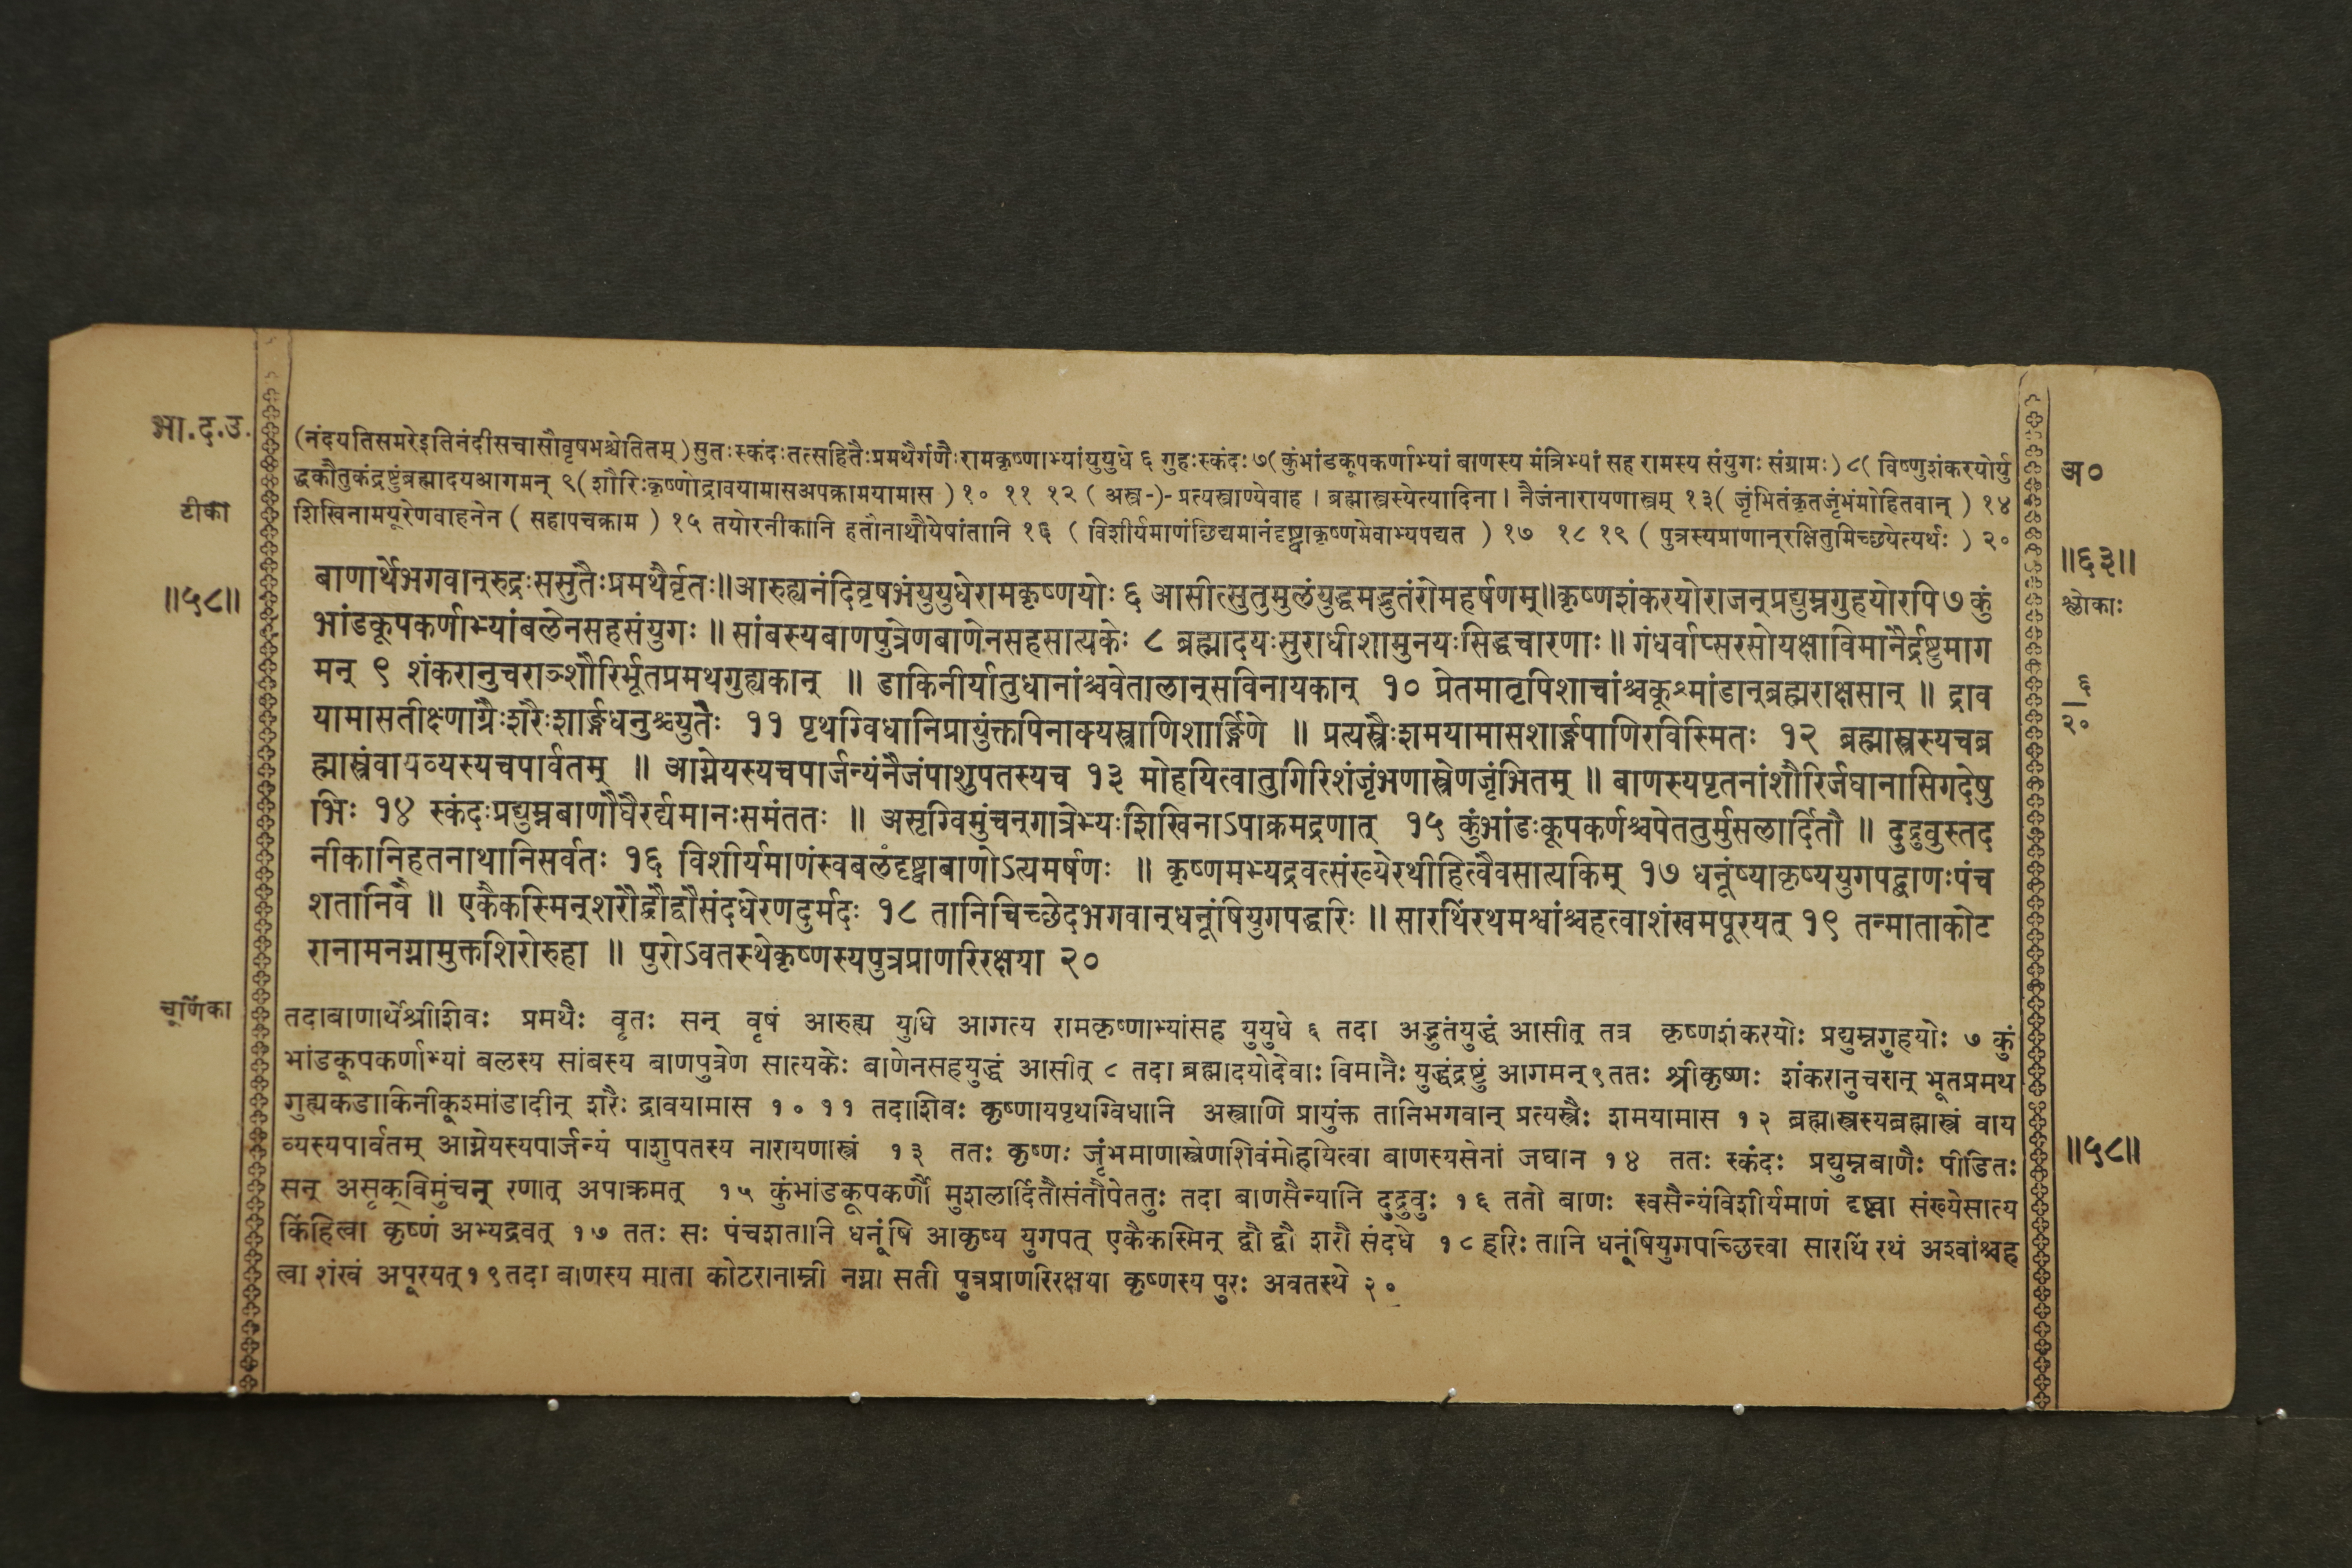 भा.द.उ.
टीका
॥५८॥
(नंदयतिसमरेइतिनंदीसचासौवृषभश्चेतितम्)सुतःस्कंदःतत्सहितैःप्रमथैर्गणैःरामकृष्णाभ्यांयुयुधे ६ गुहःस्कंदः ७(कुंभांडकूपकर्णाभ्यां बाणस्य मंत्रिभ्यां सह रामस्य संयुगः संग्रामः)८( विष्णुशंकरयोर्यु
द्धकौतुकंद्रष्टुंब्रह्मादयआगमन् ९(शौरिःकृष्णोद्रावयामासअपक्रामयामास)१० ११ १२ ( अस्त्र-)-प्रत्यस्त्राण्येवाह । ब्रह्मास्त्रस्येत्यादिना । नैजंनारायणास्त्रम् १३( जृंभितंकृतजृंभंमोहितवान् ) १४
शिखिनामयूरेणवाहनेन ( सहापचक्राम ) १५ तयोरनीकानि हतौनाथौयेषांतानि १६ ( विशीर्यमाणंछिद्यमानंदृष्ट्वाकृष्णमेवाभ्यपद्यत ) १७ १८ १९ ( पुत्रस्यप्राणान्‌रक्षितुमिच्छयेत्यर्थः ) २०
बाणार्थेभगवान्‌रुद्रःससुतैःप्रमथैर्वृतः॥आरुह्यनंदिवृषभंयुयुधेरामकृष्णयोः ६ आसीत्सुतुमुलंयुद्धमद्भुतंरोमहर्षणम्॥कृष्णशंकरयोराजन्‌प्रद्युम्नगुहयोरपि७ कुं
भांडकूपकर्णाभ्यांबलेनसहसंयुगः ॥ सांबस्यबाणपुत्रेणबाणेनसहसात्यकेः ८ ब्रह्मादयःसुराधीशामुनयःसिद्धचारणाः॥ गंधर्वाप्सरसोयक्षाविमानैर्द्रष्टुमाग
मन् ९ शंकरानुचराञ्शौरिर्भूतप्रमथगुह्यकान् ॥ डाकिनीर्यातुधानांश्चवेतालान्‌सविनायकान् १० प्रेतमातृपिशाचांश्चकूश्मांडान्‌ब्रह्मराक्षसान् ॥ द्राव
यामासतीक्ष्णाग्रैःशरैःशार्ङ्गधनुश्च्युतैः ११ पृथग्विधानिप्रायुंक्तपिनाक्यस्त्राणिशार्ङ्गिणे ॥ प्रत्यस्त्रैःशमयामासशार्ङ्गपाणिरविस्मितः १२ ब्रह्मास्त्रस्यचब्र
ह्मास्त्रंवायव्यस्यचपार्वतम् ॥ आग्नेयस्यचपार्जन्यंनैजंपाशुपतस्यच १३ मोहयित्वातुगिरिशंजृंभणास्त्रेणजृंभितम् ॥ बाणस्यपृतनांशौरिर्जघानासिगदेषु
भिः १४ स्कंदःप्रद्युम्नबाणौघैरर्द्यमानःसमंततः ॥ असृग्विमुंचन्‌गात्रेभ्यःशिखिनाऽपाक्रमद्रणात् १५ कुंभांडःकूपकर्णश्चपेततुर्मुसलार्दितौ ॥ दुद्रुवुस्तद
नीकानिहतनाथानिसर्वतः १६ विशीर्यमाणंस्वबलंदृष्ट्वाबाणोऽत्यमर्षणः ॥ कृष्णमभ्यद्रवत्संख्येरथीहित्वैवसात्यकिम् १७ धनूंष्याकृष्ययुगपद्बाणःपंच
शतानिवै ॥ एकैकस्मिन्‌शरौद्वौद्वौसंदधेरणदुर्मदः १८ तानिचिच्छेदभगवान्‌धनूंषियुगपद्धरिः ॥ सारथिंरथमश्वांश्चहत्वाशंखमपूरयत् १९ तन्माताकोट
रानामनग्नामुक्तशिरोरुहा ॥ पुरोऽवतस्थेकृष्णस्यपुत्रप्राणरिरक्षया २०
चूर्णिका
तदाबाणार्थेश्रीशिवः प्रमथैः वृतः सन् वृषं आरुह्य युधि आगत्य रामकृष्णाभ्यांसह युयुधे ६ तदा अद्भुतंयुद्धं आसीत् तत्र कृष्णशंकरयोः प्रद्युम्नगुहयोः ७ कुं
भांडकूपकर्णाभ्यां बलस्य सांबस्य बाणपुत्रेण सात्यकेः बाणेनसहयुद्धं आसीत् ८ तदा ब्रह्मादयोदेवाः विमानैः युद्धंद्रष्टुं आगमन् ९ततः श्रीकृष्णः शंकरानुचरान् भूतप्रमथ
गुह्यकडाकिनीकूश्मांडादीन् शरैः द्रावयामास १० ११ तदाशिवः कृष्णायपृथग्विधानि अस्त्राणि प्रायुंक्त तानिभगवान् प्रत्यस्त्रैः शमयामास १२ ब्रह्मास्त्रस्यब्रह्मास्त्रं वाय
व्यस्यपार्वतम् आग्नेयस्यपार्जन्यं पाशुपतस्य नारायणास्त्रं १३ ततः कृष्णः जृंभमाणास्त्रेणशिवंमोहयित्वा बाणस्यसेनां जघान १४ ततः स्कंदः प्रद्युम्नबाणैः पीडितः
सन् असृक्‌विमुंचन् रणात् अपाक्रमत् १५ कुंभांडकूपकर्णौ मुशलार्दितौसंतौपेततुः तदा बाणसैन्यानि दुद्रुवुः १६ ततो बाणः स्वसैन्यंविशीर्यमाणं दृष्ट्वा संख्येसात्य
किंहित्वा कृष्णं अभ्यद्रवत् १७ ततः सः पंचशतानि धनूंषि आकृष्य युगपत् एकैकस्मिन् द्वौ द्वौ शरौ संदधे १८ हरिः तानि धनूंषियुगपच्छित्त्वा सारथिं रथं अश्वांश्चह
त्वा शंखं अपूरयत्१९तदा बाणस्य माता कोटरानाम्नी नग्ना सती पुत्रप्राणरिरक्षया कृष्णस्य पुरः अवतस्थे २०
अ०
॥६३॥
श्लोकाः
६
२०
॥५८॥